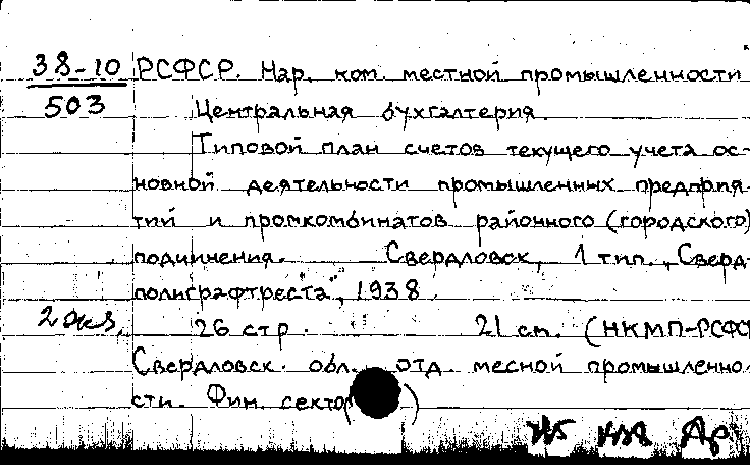 38-10 РСФСР. Нар. ком. местной промышленности
503 Центральная бухгалтерия.
Типовой план счетов текущего учета ос-
новной деятельности промышленных предприя-
тий и промкомбинатов районного (городского)
подчинения. Свердловск, 1 тип. „Сверд-
полиграфтреста", 1938.
2 экз. 26 стр. 21 см. (НКМП-РСФСР
Свердловск. обл. отд. месной промышленно-
сти. Фин. сектор)